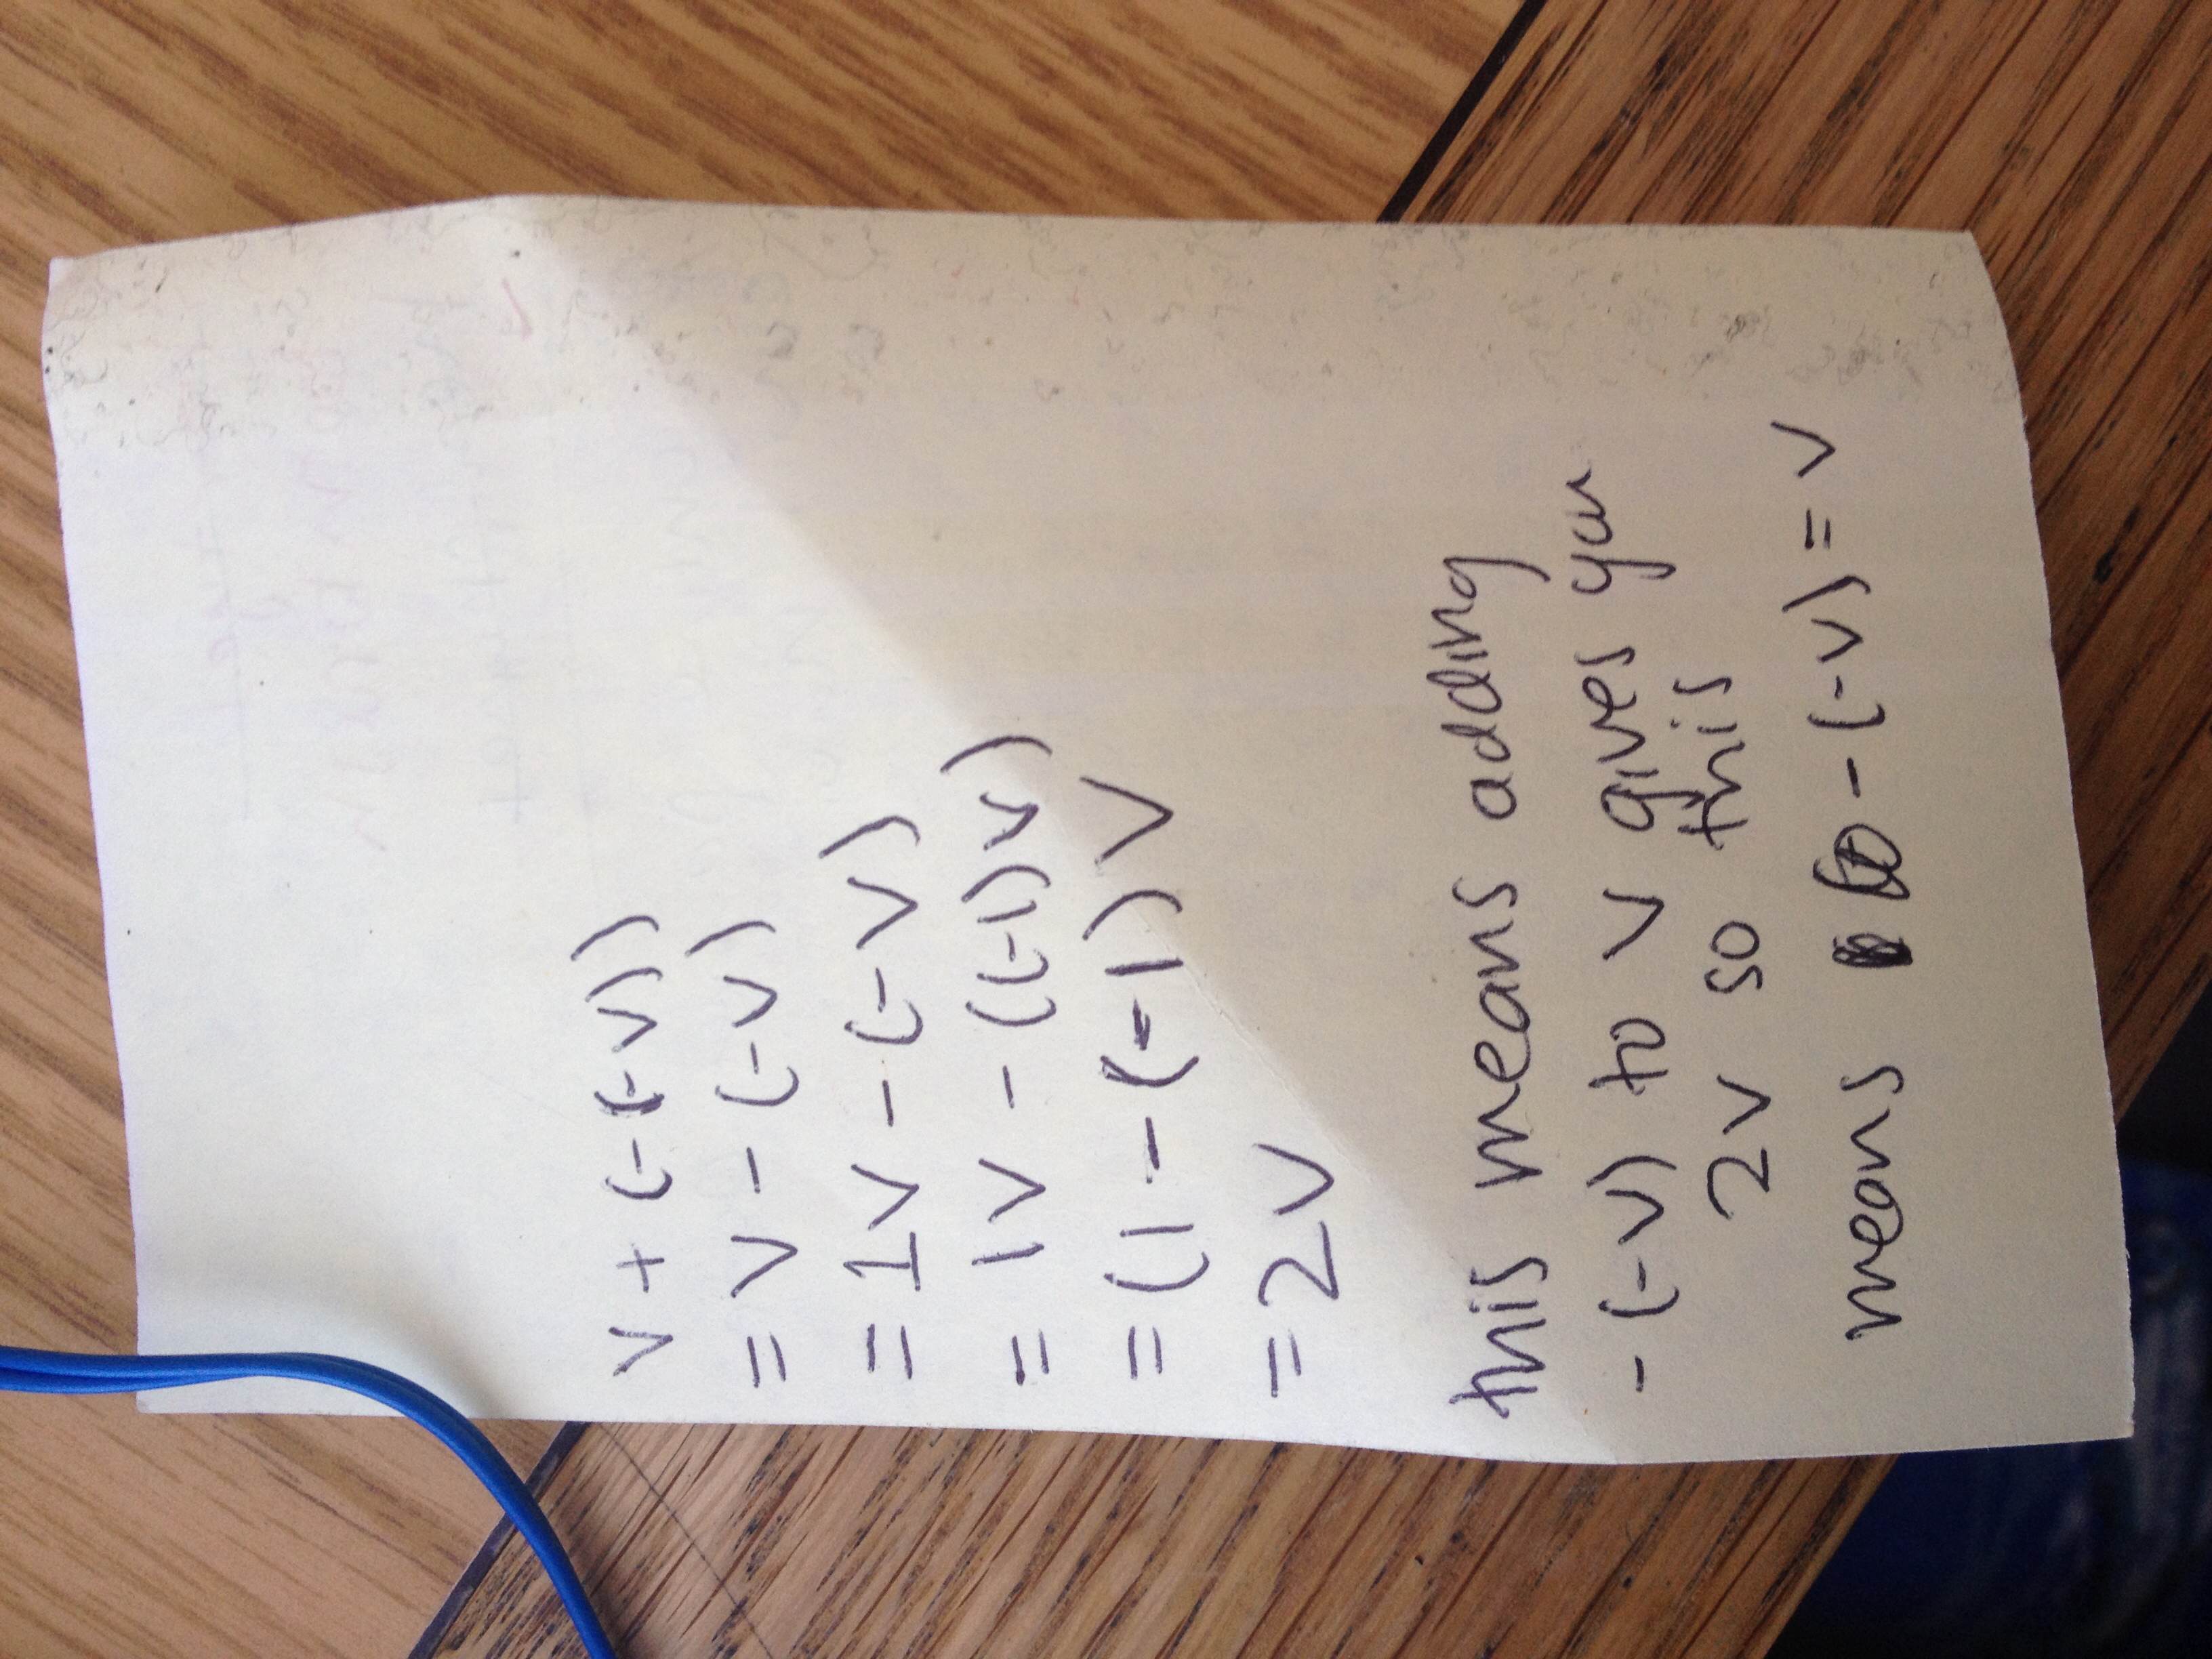 V + (-(-V))
= V - (-V)
= 1V - (-V)
= 1V - ((-1)V)
= (1 - (-1)V
= 2V
this means adding
-(-V) to V gives you
2V so this
means -(-V) = V